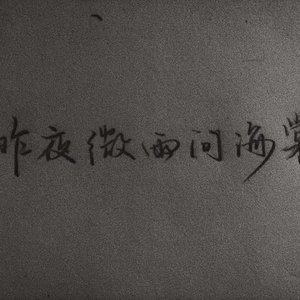 昨夜微雨问海棠